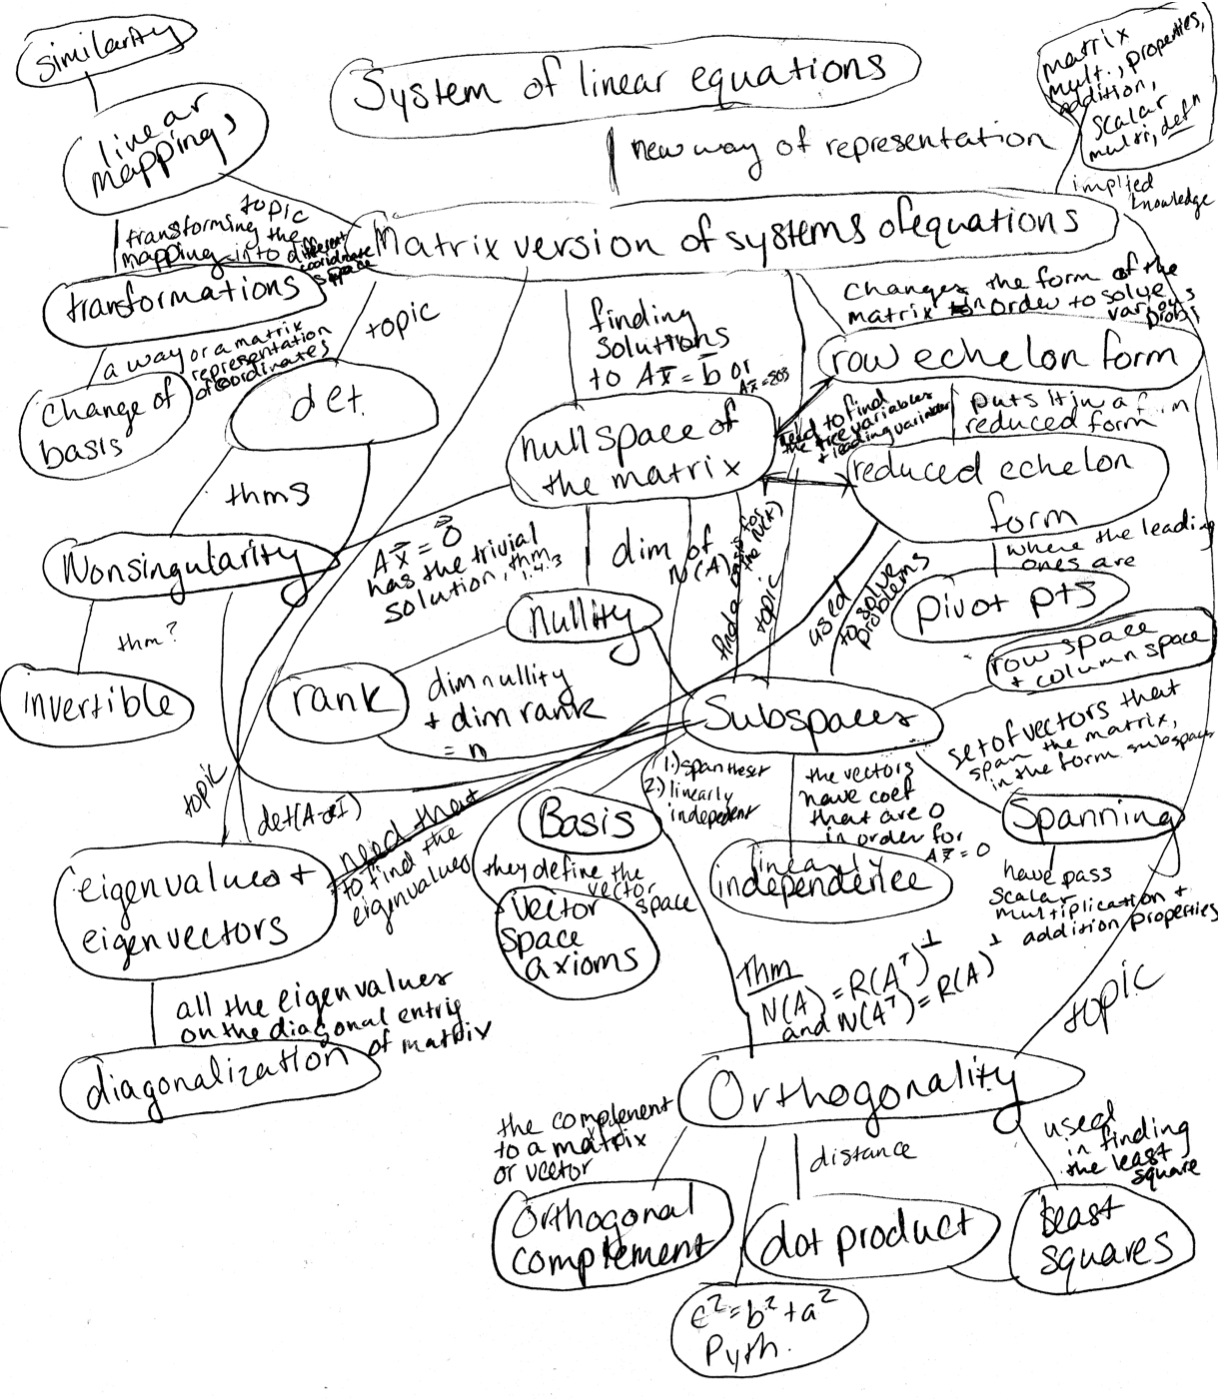 similarity
System of linear equations
matrix
mult., properties,
addition,
scalar
multi, defn
linear
mappings
new way of representation
implied
knowledge
topic
transforming the
mapping into different
coordinate
space
Matrix version of systems of equations
transformations
topic
finding
solutions
to Ax̄ = b̄ or
changes the form of the
matrix in order to solve
various
probs
a way or a matrix
representation
of coordinates
row echelon form
change of
basis
det.
nullspace of
the matrix
need to find
the free variables
+ leading variables
reduced form
reduced echelon
form
thms
Nonsingularity
Ax⃗ = 0⃗
has the trivial
solution, thm
1.4.3
dim of
N(A)
find a basis for
the N(A)
topic
used
to solve
problems
where the leading
ones are
pivot pts
thm?
nullity
row space
+ column space
invertible
rank
dim nullity
+ dim rank
= n
Subspaces
set of vectors that
span the matrix,
in the form subspace
topic
det(A-λI)
1.) span the set
2.) linearly
independent
the vectors
have coef
that are 0
in order for
Ax̄ = 0
Basis
Spanning
need that
to find the
eigenvalues
eigenvalues +
eigenvectors
they define the
vector
space
linearly
independence
have pass
scalar
multiplication +
addition properties
vector
space
axioms
all the eigenvalues
on the diagonal entry
of matrix
diagonalization
Thm
N(A) = R(Aᵀ)⊥
and N(Aᵀ) = R(A)⊥
topic
Orthogonality
the complement
to a matrix
or vector
distance
used
in finding
the least
square
Orthogonal
complement
dot product
least
squares
c² = b² + a²
Pyth.